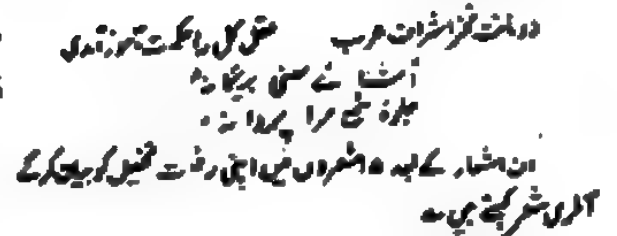 فخر اشراف عرب عقل کل را حکمت آموز آمدی
آشنائے معنی بیگانۂ
جلوۂ شمع مرا پروانۂ
ان اشعار کے بعد ۵ شعروں میں اپنی رفعت تخیل کو بیان کرکے
آخری شعر کہتے ہیں ؎